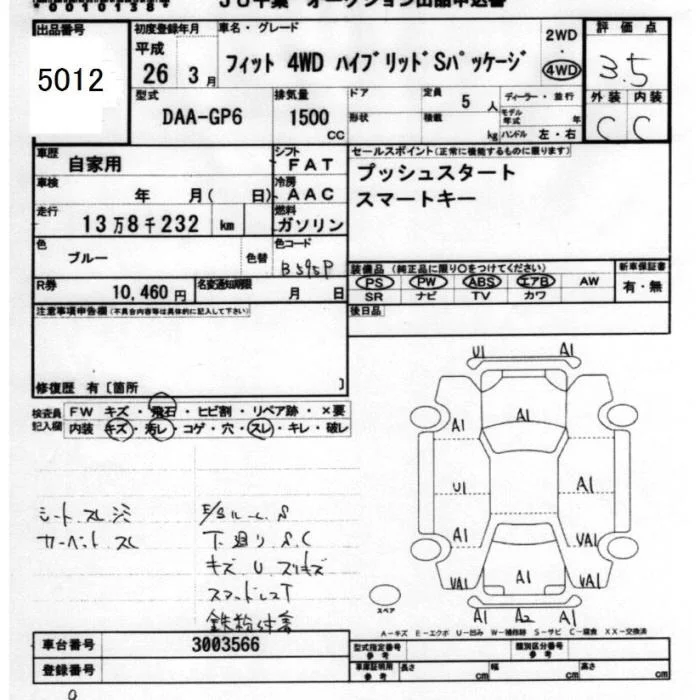 JU千葉 オークション出品申込書
出品番号 初度登録年月 車名・グレード 2WD・4WD 評価点
5012 平成 26 3月 フィット 4WD ハイブリッドSパッケージ 3.5
型式 排気量 ドア 定員 5人 ディーラー・並行 外装 内装
DAA-GP6 1500 CC 形状 積載 kg モデル年式 年 ハンドル 左・右 C C
車歴 自家用 シフト FAT セールスポイント(正常に機能するものに限ります)
車検 年 月(日) 冷房 AAC プッシュスタート
走行 13万8千232 km 燃料 ガソリン スマートキー
色 ブルー 色替 色コード B595P
装備品(純正品に限り○をつけてください) 新車保証書
PS PW ABS エアB AW 有・無
SR ナビ TV カワ
R券 10,460円 名変通知期限 月 日
注意事項申告欄(不具合内容等は具体的に記入して下さい) 後日品
修復歴 有〔箇所 〕
検査員記入欄 FW キズ・飛石・ヒビ割・リペア跡・×要
内装 キズ・汚レ・コゲ・穴・スレ・キレ・破レ
シート スレ シミ
カーペット スレ
E/Sルーム S
下廻り S.C
キズ U スリキズ
スマートレスT
鉄粉付着
U1 A1
A1 A1
U1 A1
A1 UA1
UA1 A1 UA1
A1 A2 A1
スペア
A-キズ E-エクボ U-凹み W-補修跡 S-サビ C-腐食 XX-交換済
車台番号 3003566 型式指定番号 参考 類別区分番号 参考
登録番号 車庫証明用 参考 長さ cm 幅 cm 高さ cm